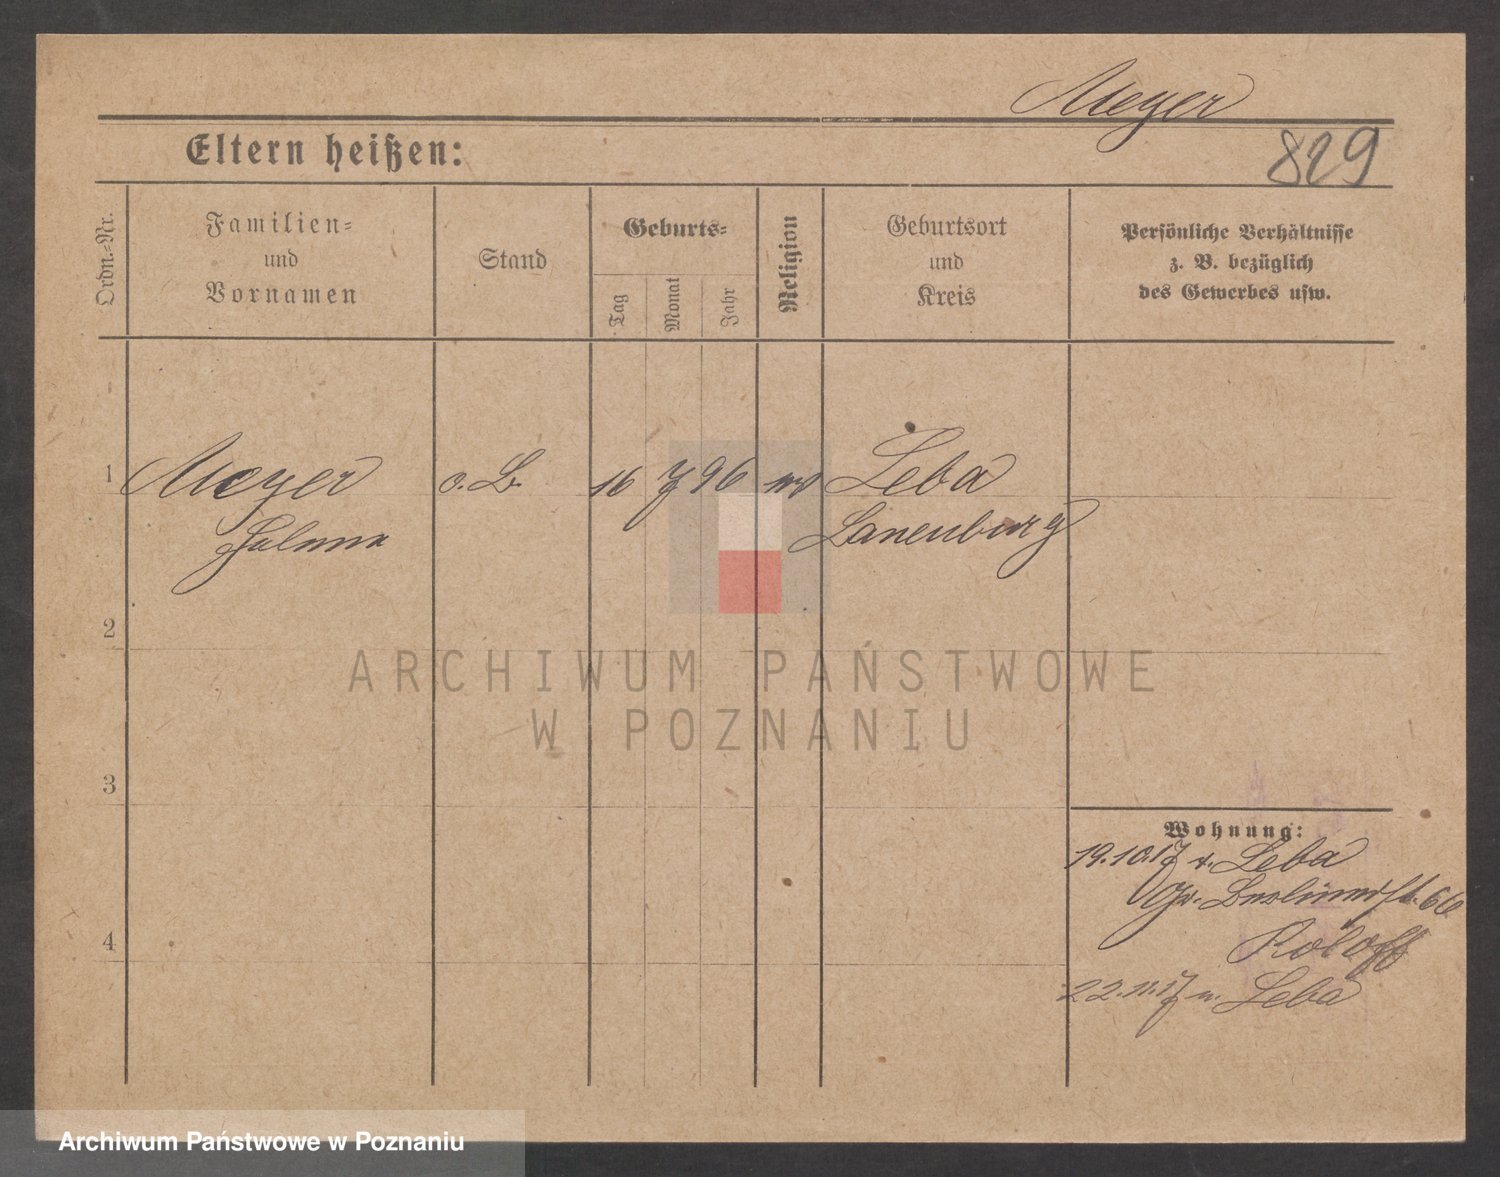 Meyer
829
Eltern heißen:
Ordn.-Nr.
Familien-
und
Vornamen
Stand
Geburts-
Tag
Monat
Jahr
Religion
Geburtsort
und
Kreis
Persönliche Verhältnisse
z. B. bezüglich
des Gewerbes usw.
1
Meyer
o. B.
16
7
96
Leba
Lauenburg
2
3
4
ARCHIWUM PAŃSTWOWE
W POZNANIU
Wohnung:
19.10.17 v. Leba
Gr. 66
Roloff
22.11.17 n. Leba
Archiwum Państwowe w Poznaniu